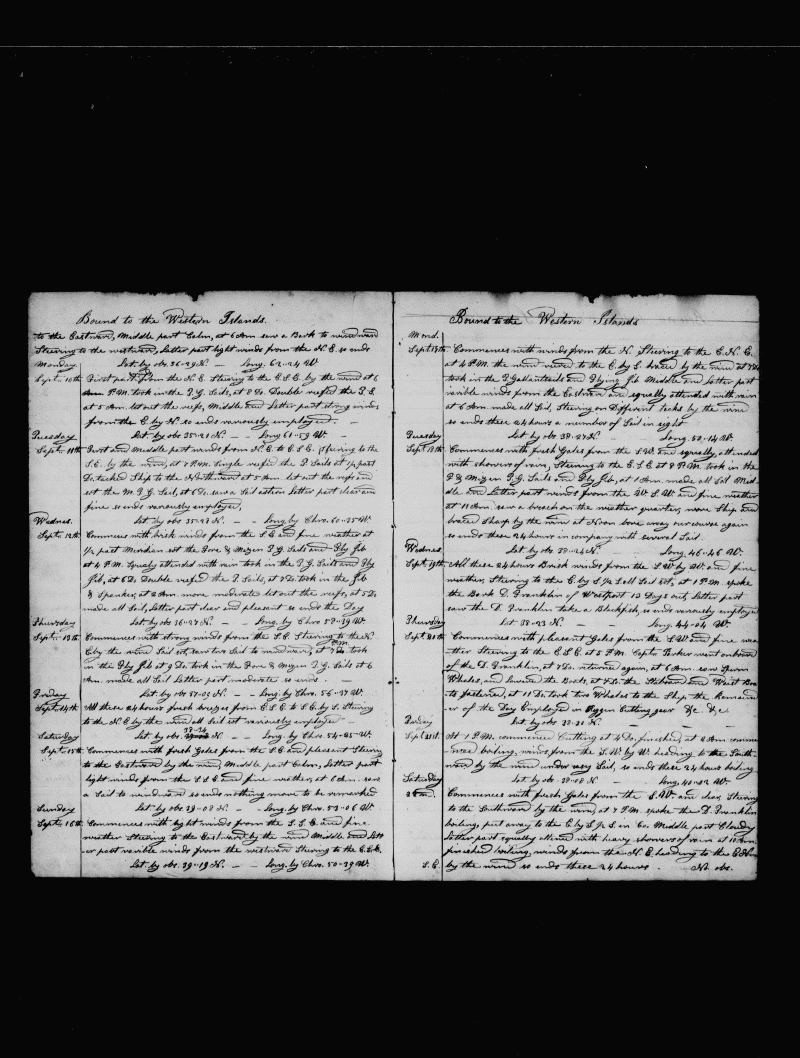 Bound to the Western Islands.
to the Eastward, Middle part Calm, at 6 Am saw a Bark to windward
Steering to the westward, latter part light winds from the N.E. so ends
Monday Lat by obs 36-29 N. — Long. 62-24 W.
Sept. 10th First part from the N.E. Steering to the E.S.E. by the wind at 6
P.M. took in the T.G. Sails, at 8 Do. Double reefed the T.S.
at 5 Am. let out the reefs, Middle and latter part strong winds
from the E. by N. so ends variously employed. —
Tuesday Lat by obs 35-21 N. — Long 61-59 W. —
Sept. 11th First and Middle part winds from N.E. to E.S.E. Steering to the
S.E. by the wind, at 7 P.M. Single reefed the T. Sails at 1/2 past
Do. tacked Ship to the Northward at 5 Am. let out the reefs and
set the M.T.G. Sail, at 6 Do. saw a Sail astern latter part clear and
fine so ends variously employed,
Wednes. Lat by obs 35-23 N. — Long. by Chro. 60-25 W.
Sept. 12th Commences with brisk winds from the S.E. and fine weather at
1/2 part Meridian set the Fore & Mizen T.G. Sails and Fly Jib
at 4 P.M. Squaly attended with rain took in the T.G. Sails and Fly
Jib, at 6 Do. Double reefed the T. Sails, at 7 Do. took in the Jib
& Spanker, at 2 Am. more moderate let out the reefs, at 5 Do.
made all Sail, latter part clear and pleasant so ends the Day
Thursday Lat by obs 36-27 N. — Long. by Chro 59-39 W.
Sept. 13th Commences with strong winds from the S.E. Steering to the N.
E. by the wind Sail set, saw two Sail to windward, at 7 P.M. took
in the Fly Jib at 9 Do. took in the Fore & Mizen T.G. Sails at 6
Am. made all Sail latter part moderate so ends. —
Friday Lat by obs 37-05 N. — Long. by Chro. 56-27 W.
Sept. 14th All these 24 hours fresh breezes from E.S.E. to S.E. by S. Steering
to the N.E. by the wind all Sail set variously employed —
Saturday Lat by obs. 38-24 N — Long. by Chro. 54-25 W.
Sept. 15th Commences with fresh Gales from the S.E. and pleasant Steering
to the Eastward by the wind, Middle part Calm, latter part
light winds from the S.S.E. and fine weather, at 6 Am. saw
a Sail to windward so ends nothing more to be remarked
Sunday Lat by obs 39-03 N. — Long. by Chro 53-06 W.
Sept. 16th Commences with light winds from the S.S.E. and fine
weather Steering to the Eastward by the wind Middle and latt
er part variable winds from the westward Steering to the E.S.E.
Lat. by obs. 39-19 N. — Long. by Chro. 50-39 W.
Bound to the Western Islands
Mond.
Sept 17th Commences with winds from the N. Steering to the E.N.E.
at 4 P.M. the wind veered to the E. by S. braced by the wind at 7 Do
took in the T. Gallantsails and Flying Jib Middle and latter part
variable winds from the Eastward and squally attended with rain
at 6 Am. made all Sail, Steering on Different tacks by the wind
so ends these 24 hours a number of Sail in sight
Tuesday Lat by obs 38-27 N. — Long. 50-14 W.
Sept 18th Commences with fresh Gales from the S.W. and squally, attended
with showers of rain, Steering to the E.S.E. at 9 P.M. took in the
F & Mizen T.G. Sails and Fly Jib, at 1 Am. made all Sail Mid-
dle and latter part winds from the W.S.W. and fine weather
at 11 Am saw a breach on the weather quarter, wore Ship and
braced Sharp by the wind at Noon bore away our course again
so ends these 24 hours in company with several Sail
Wednes. Lat by obs 38-24 N. — Long. 46-46 W.
Sept 19th All these 24 hours Brisk winds from the S.W. by W. and fine
weather, Steering to the E. by S. 1/2 S. all Sail set, at 1 P.M. spoke
the Bark D. Franklin of Westport 13 Days out, latter part
saw the D. Franklin take a Blackfish, so ends variously employed
Thursday Lat 38-23 N. — Long. 44-04 W.
Sept 20th Commences with pleasant Gales from the S.W. and fine wea
ther Steering to the E.S.E. at 5 P.M. Captn Parker went onboard
of the D. Franklin, at 7 Do. returned again, at 6 Am. saw Sperm
Whales, and lowered the Boats, at 7 Do. the Starboard and Waist Boa
ts fastened, at 11 Do. took two Whales to the Ship, the Remaind
er of the Day Employed in Riggen Cutting gear &c &c
Friday Lat by obs 38-31 N. — —
Sept 21st. At 1 P.M. commenced Cutting at 4 Do. finished, at 8 Am comme
nced boiling, winds from the S.W. by W. heading to the South-
ward by the wind under easy Sail, so ends these 24 hours boiling
Saturday Lat by obs 38-08 N. Long, 40-52 W.
22nd. Commences with fresh Gales from the S.W. and clear, Steering
to the Southward by the wind, at 2 P.M. spoke the D. Franklin
boiling, put away to the E. by S. 1/2 S. in Co. Middle part Cloudy
latter part squally attend with heavy showers of rain at 10 Am.
finished boiling, winds from the N.E. heading to the
S.E. by the wind so ends these 24 hours. No obs.